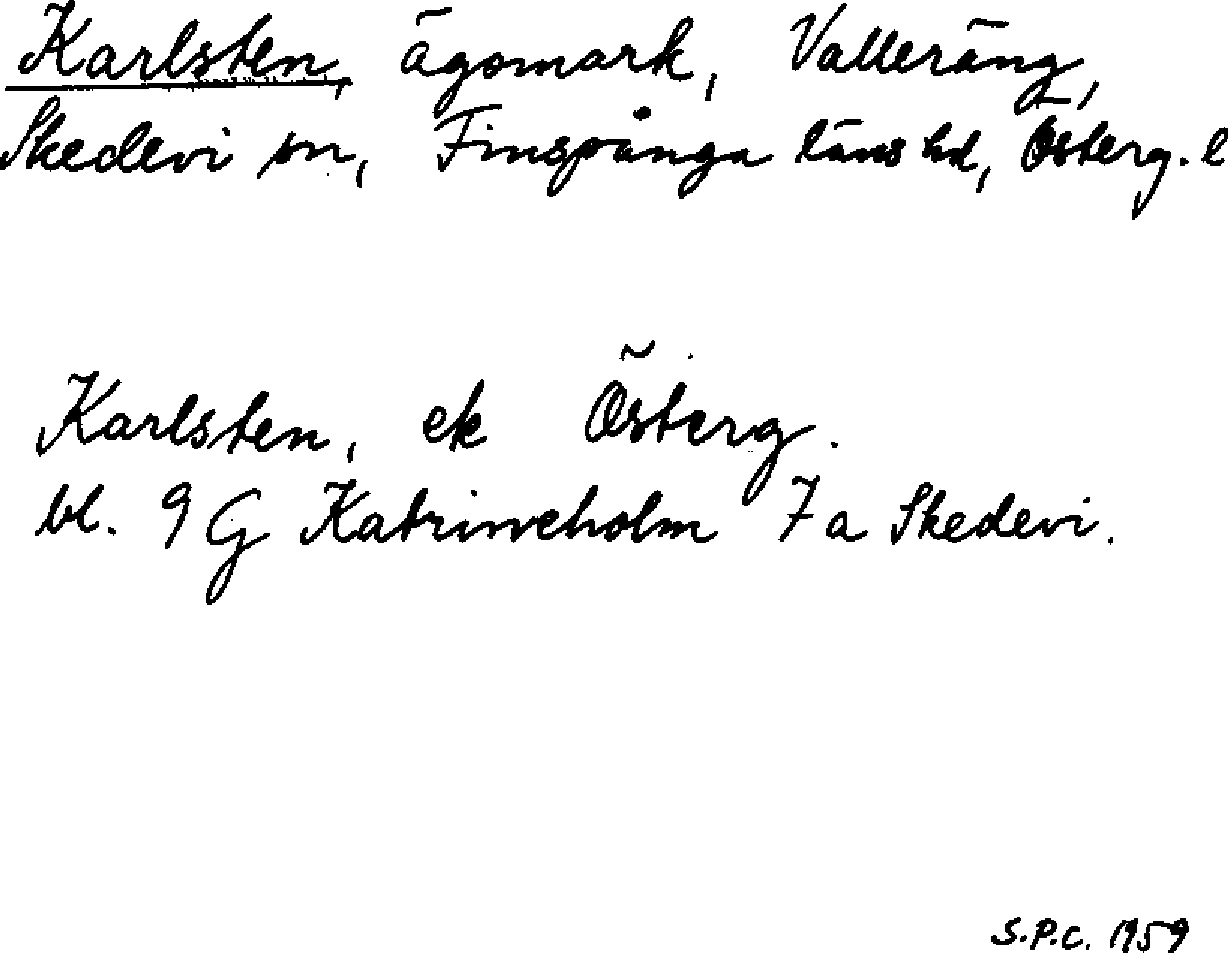 Karlsten, ägomark, Valleräng,
Skedevi sn, Finspånga läns hd, Österg. l
Karlsten, ek Österg.
bl. 9 G Katrineholm 7 a Skedevi.
S.P.C. 1959